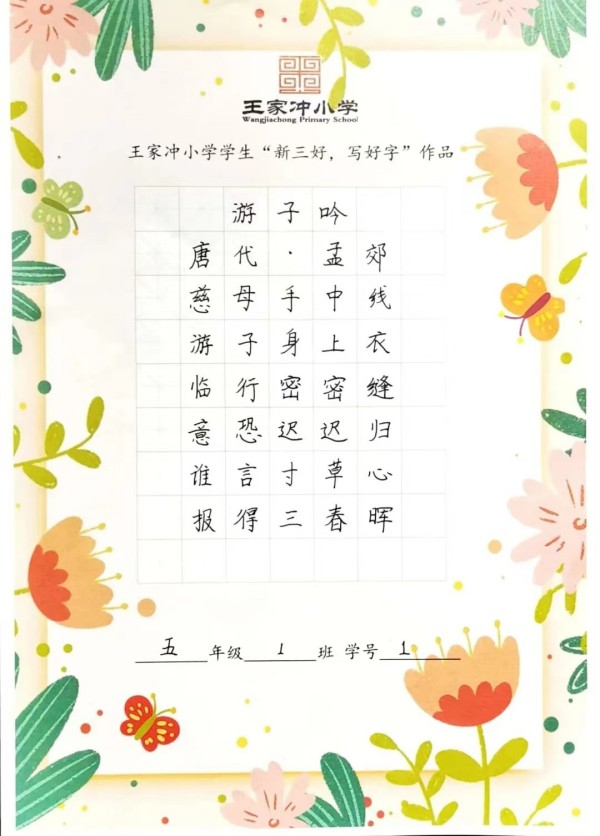 王家冲小学
Wangjiachong Primary School
王家冲小学学生“新三好，写好字”作品
游子吟
唐代·孟郊
慈母手中线
游子身上衣
临行密密缝
意恐迟迟归
谁言寸草心
报得三春晖
五年级1班 学号1